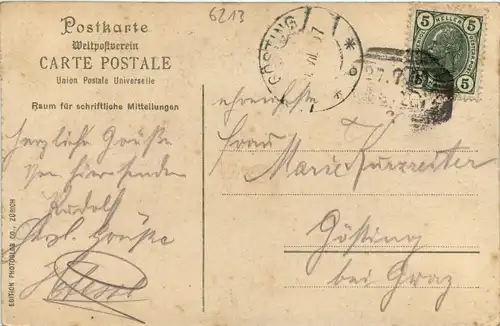 6213
Postkarte
Weltpostverein
CARTE POSTALE
Union Postale Universelle
Raum für schriftliche Mitteilungen
Herzliche Grüße
senden
Rudolf
Herzl. Grüße
EDITION PHOTOGLOB CO., ZÜRICH
GÖSTING
5 HELLER 5
27.7
Frau
Marie Kurzreiter
Gösting
bei Graz